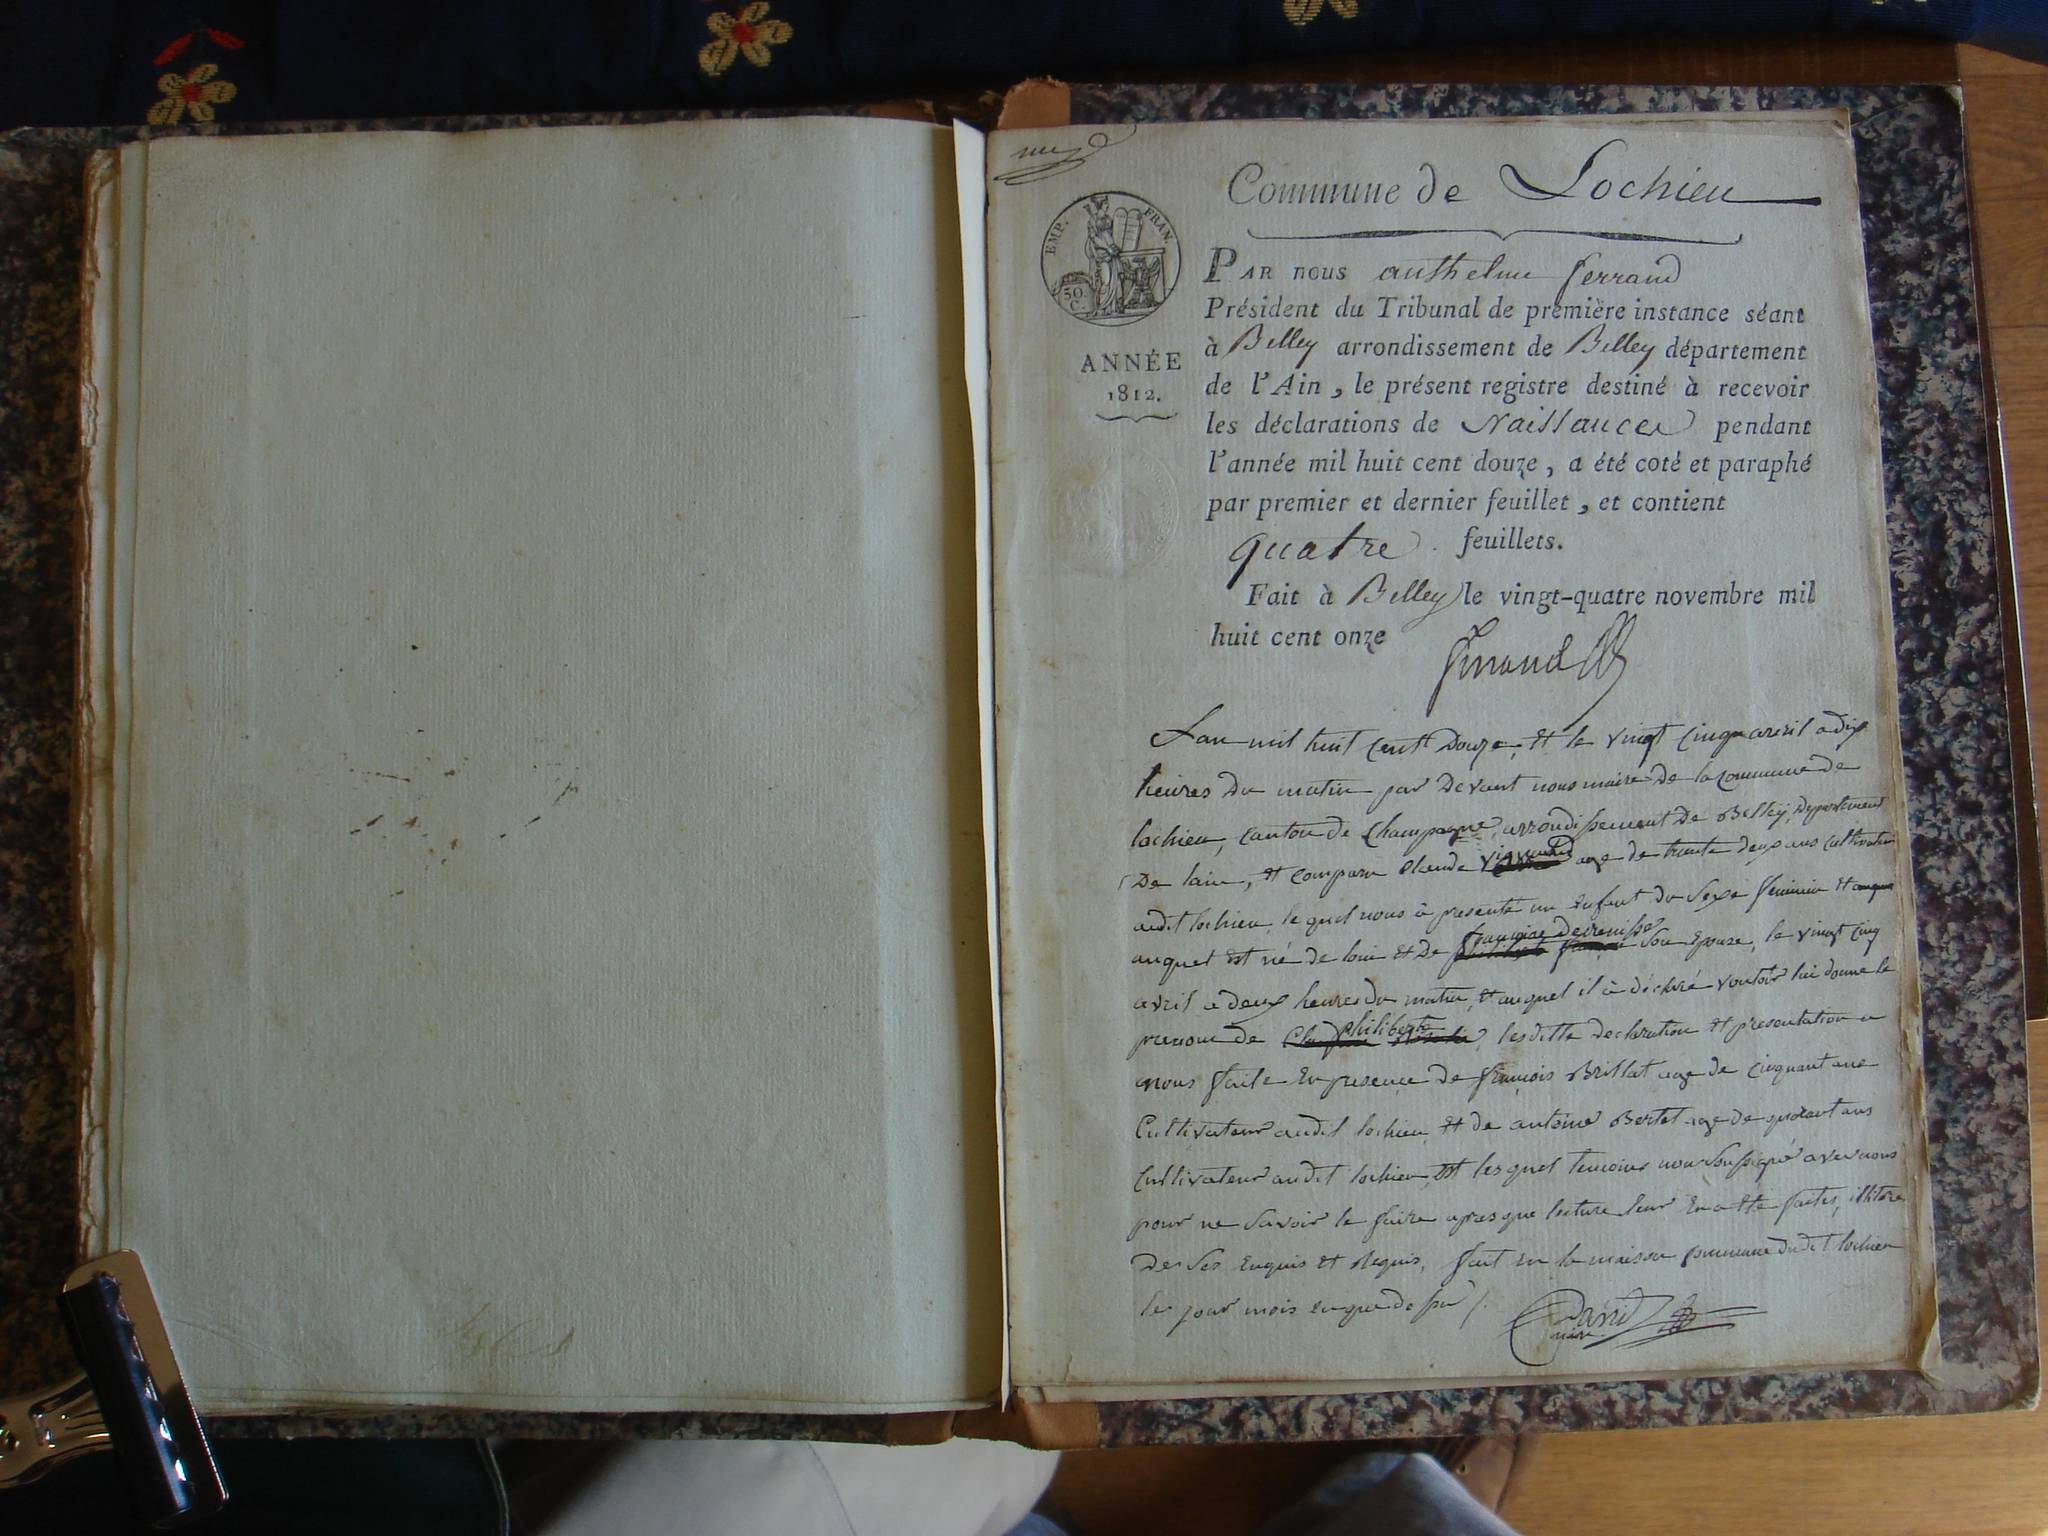 EMP. FRAN.
30.
C.
ANNÉE
1812.
Commune de Lochieu
PAR nous anthelme ferrand
Président du Tribunal de première instance séant
à Belley arrondissement de Belley département
de l'Ain, le présent registre destiné à recevoir
les déclarations de Naissances pendant
l'année mil huit cent douze, a été coté et paraphé
par premier et dernier feuillet, et contient
quatre feuillets.
Fait à Belley le vingt-quatre novembre mil
huit cent onze
Ferrand
Lan mil huit cent Douze, et le vingt cinq avril a dix
heures du matin par devant nous maire de la commune de
lochieu, canton de Champagne, arrondissement de Belley, Departement
De lain, et comparu Claude age de trente deux ans cultivateur
audit lochieu, le quel nous à presenté un Enfant du Sexe feminin et
auquel est né de loui et de françoise son Epouse, le vingt cinq
avril a deux heures du matin, et auquel il à déclaré vouloir lui donne le
prenom de philiberte, lesditte declaration et presentation a
nous faite En presence de françois Brillat age de cinquant ans
Cultivateur audit lochieu et de antoine Bertet age de quarant ans
Cultivateur audit lochieu, et lesquel temoins non soussigné avec nous
pour ne savoir le faire apres que lecture leur En a été faites,
De Ses Enquis et Requis, fait en la maison commune dudit lochieu
les jour mois en que dessu
David
maire